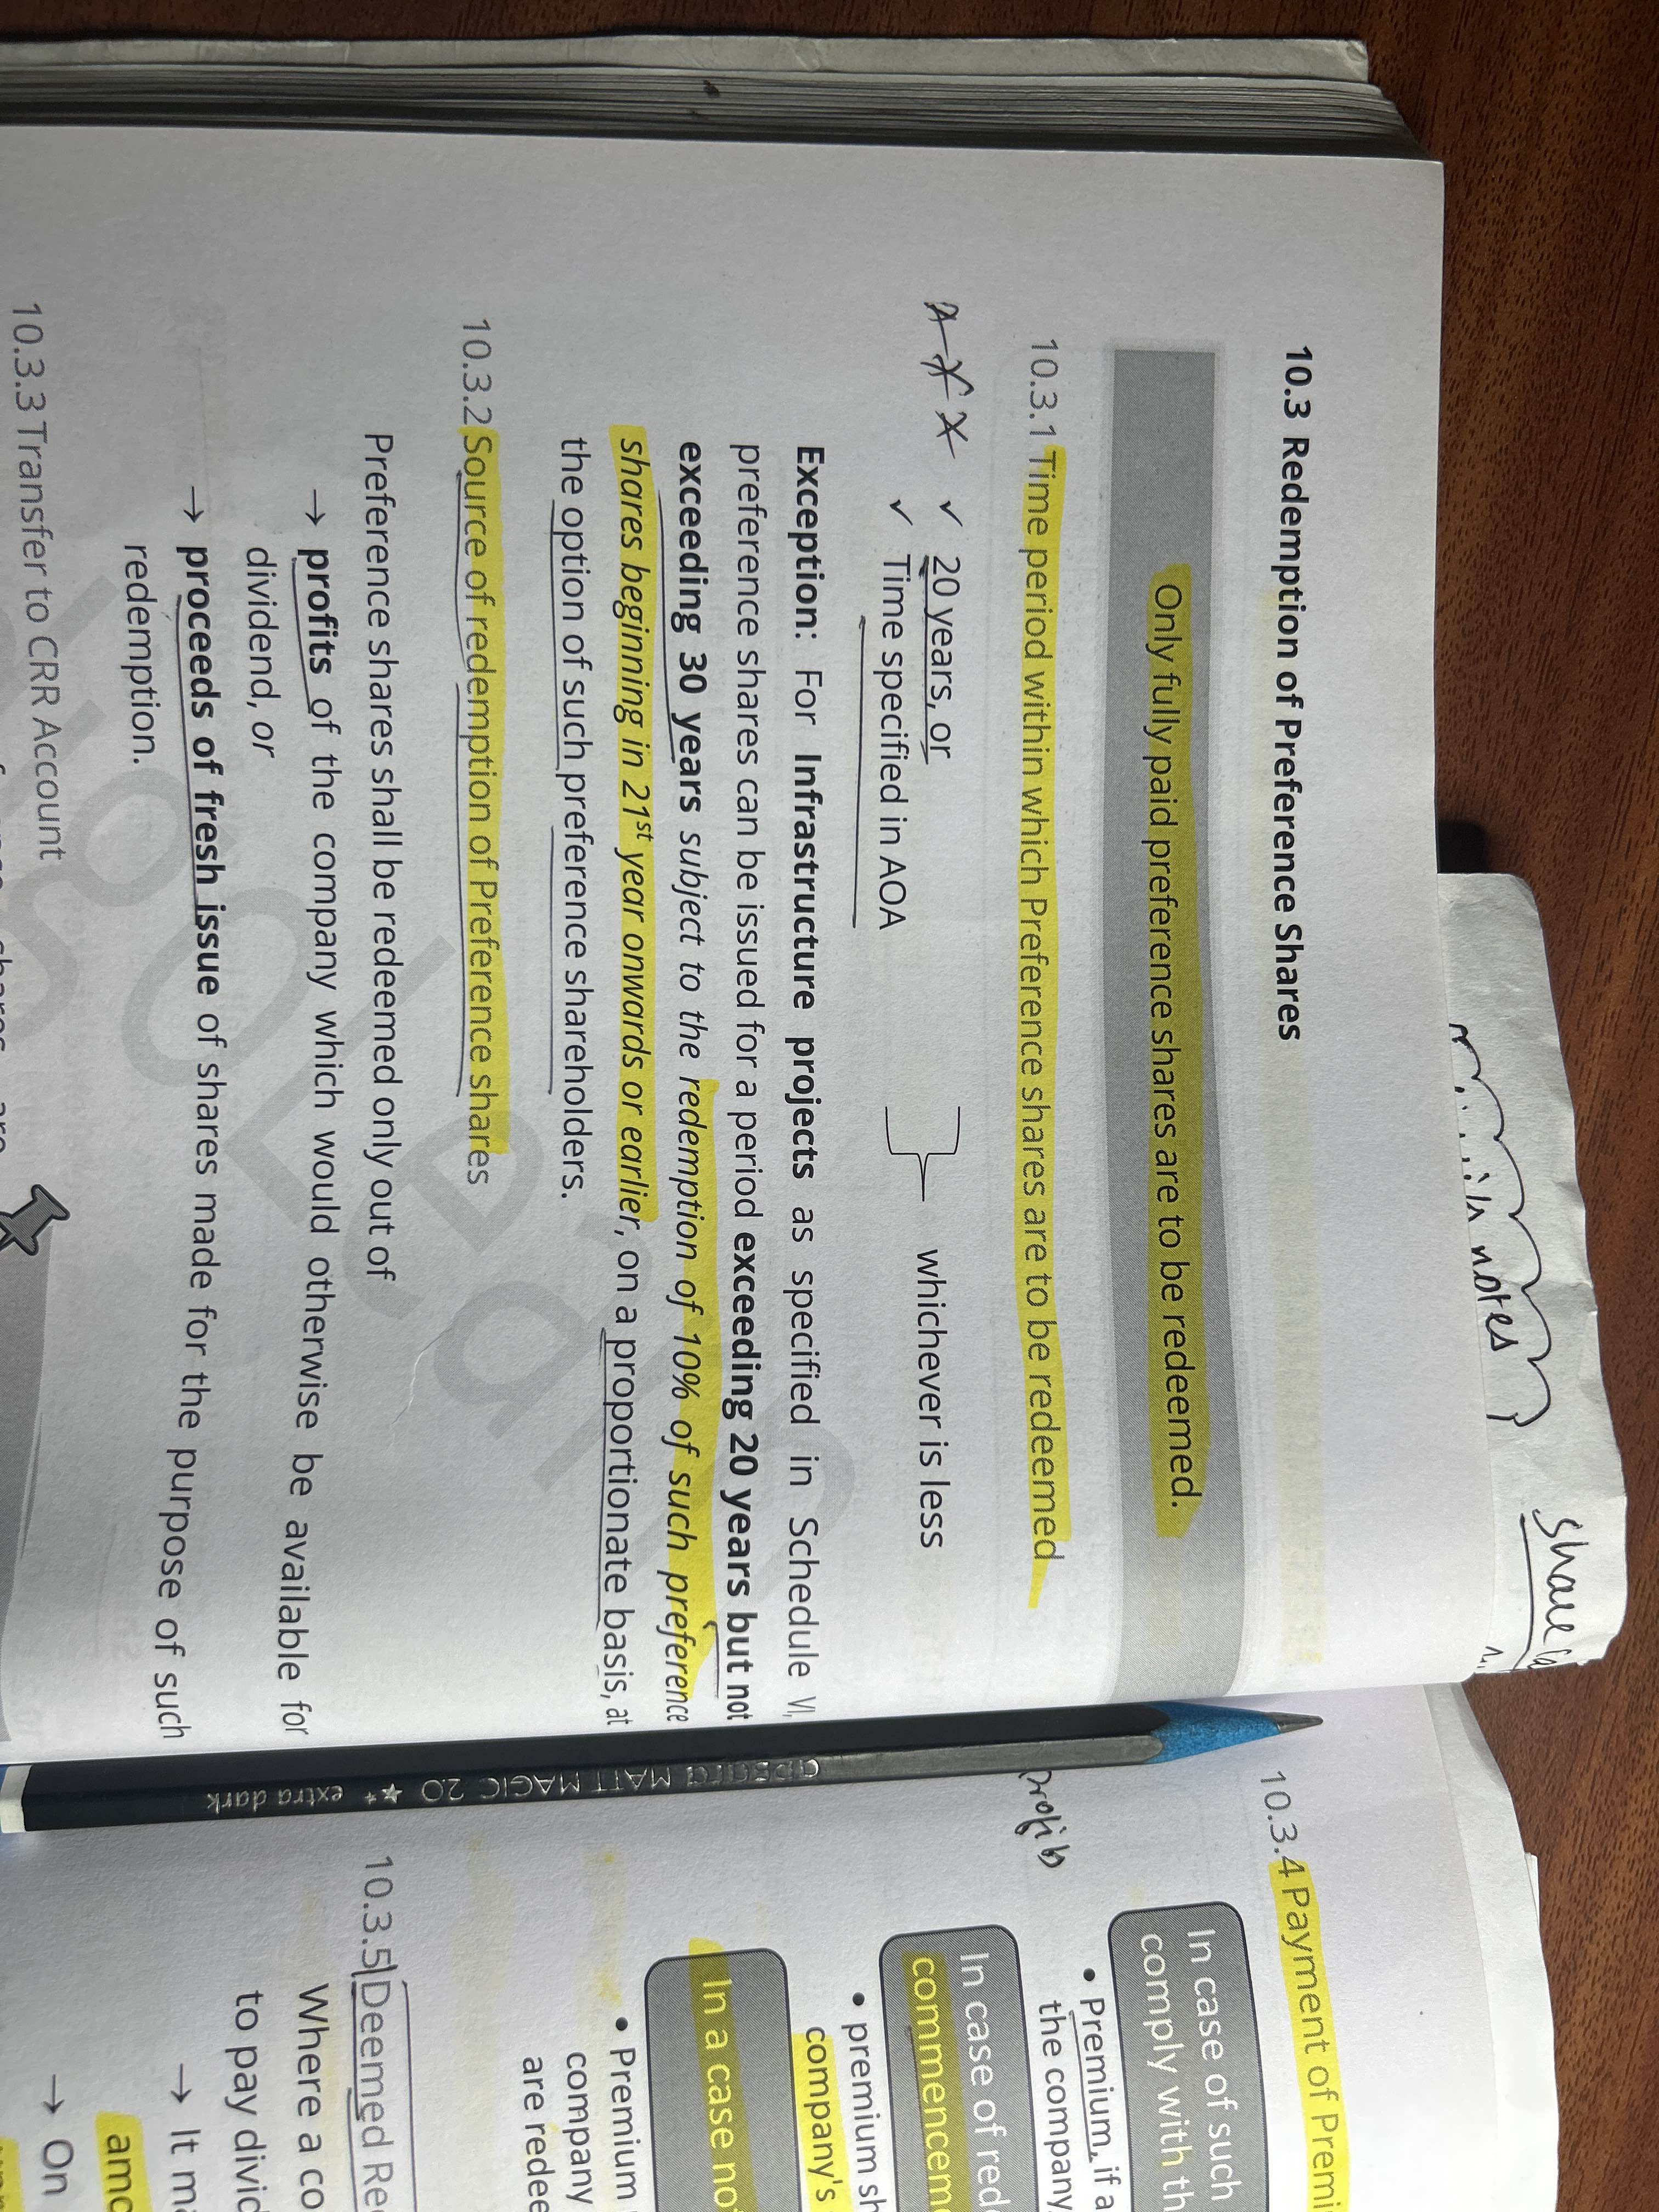 10.3 Redemption of Preference Shares
Only fully paid preference shares are to be redeemed.
10.3.1 Time period within which Preference shares are to be redeemed
✓ 20 years, or
✓ Time specified in AOA
whichever is less
Exception: For Infrastructure projects as specified in Schedule VI,
preference shares can be issued for a period exceeding 20 years but not
exceeding 30 years subject to the redemption of 10% of such preference
shares beginning in 21st year onwards or earlier, on a proportionate basis, at
the option of such preference shareholders.
10.3.2 Source of redemption of Preference shares
Preference shares shall be redeemed only out of
→ profits of the company which would otherwise be available for
dividend, or
→ proceeds of fresh issue of shares made for the purpose of such
redemption.
10.3.3 Transfer to CRR Account
in notes
share
MATT MAGIC 2.0 ★ extra dark
10.3.4 Payment of Premi
In case of such
comply with th
• Premium, if a
the company
profits
In case of red
commencem
• premium sh
company's
In a case no
• Premium
company
are redee
10.3.5 Deemed Re
Where a co
to pay divid
→ It ma
amo
→ On